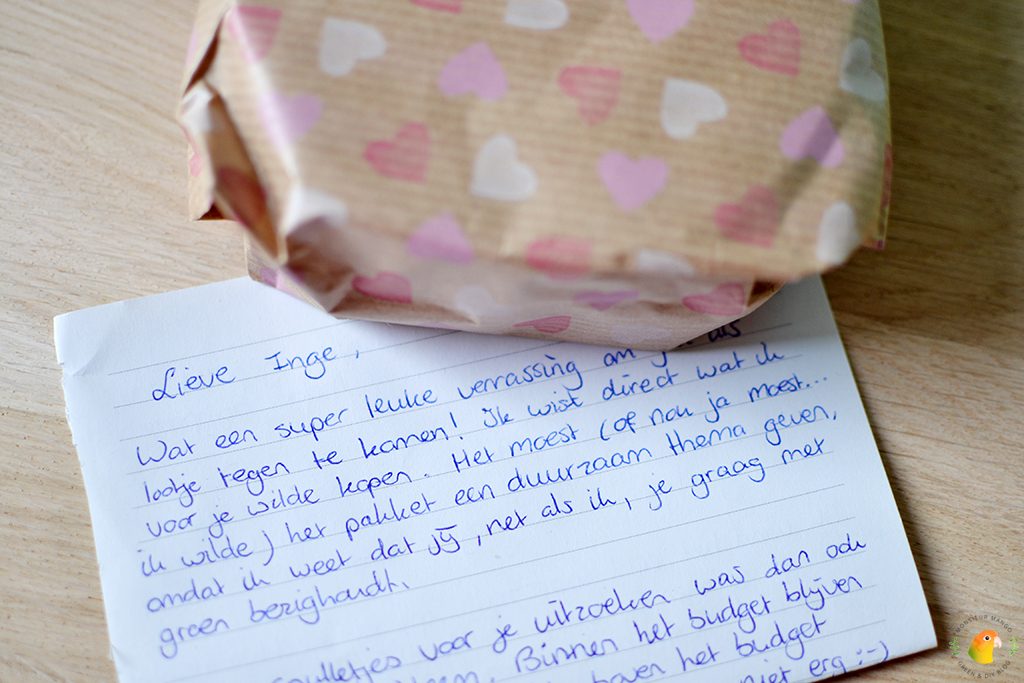 Lieve Inge,
Wat een super leuke verrassing om je als
lootje tegen te komen! Ik wist direct wat ik
voor je wilde kopen. Het moest (of nou ja moest...
ik wilde) het pakket een duurzaam thema geven,
omdat ik weet dat jij, net als ik, je graag met
groen bezighoudt.
voor je uitzoeken was dan ook
Binnen het budget blijven
boven het budget
niet erg :-)
MONSIEUR MANGO
GREEN & DIY BLOG